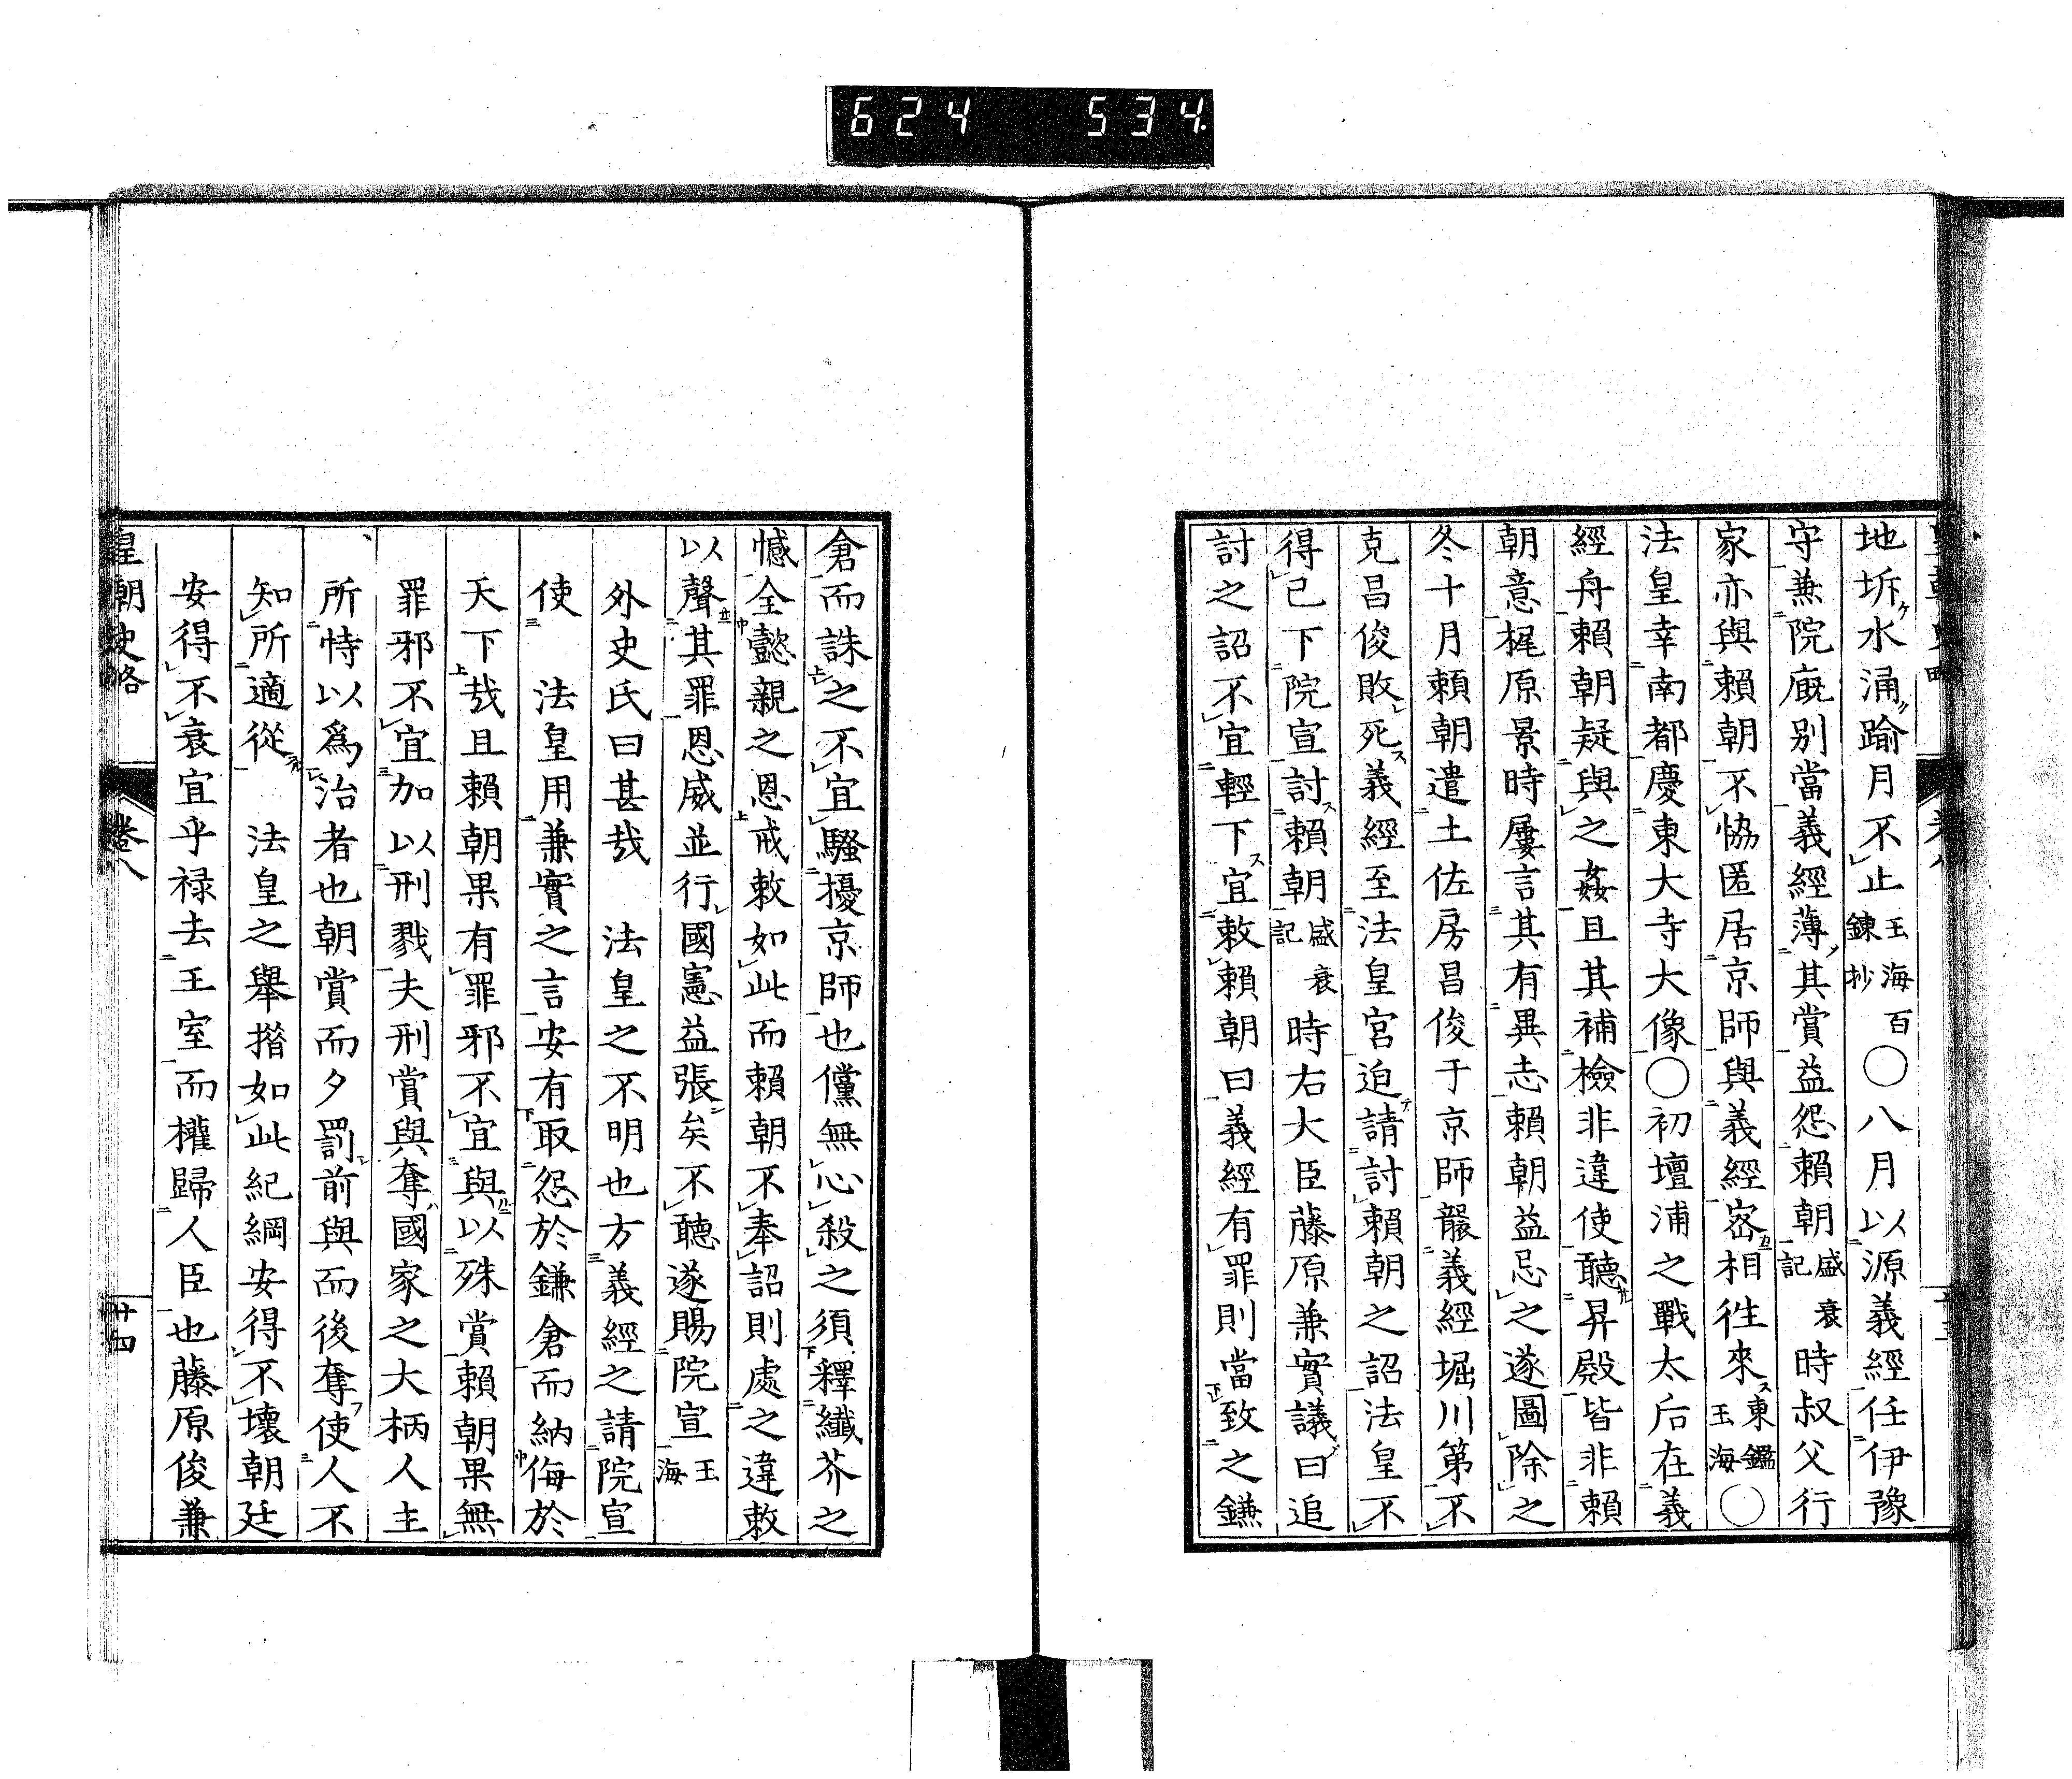 624 534.
地坼水涌踰月不止玉海百錬抄〇八月以源義經任伊豫
守兼院廐別當義經薄其賞益怨賴朝盛衰記時叔父行
家亦與賴朝不恊匿居京師與義經宻相徃來東鑑玉海〇
法皇幸南都慶東大寺大像〇初壇浦之戰太后在義
經舟賴朝疑與之姦且其補檢非違使聽昇殿皆非賴
朝意梶原景時屢言其有異志賴朝益忌之遂圖除之
冬十月賴朝遣土佐房昌俊于京師襲義經堀川第不
克昌俊敗死義經至法皇宮迫請討賴朝之詔法皇不
得已下院宣討賴朝盛衰記時右大臣藤原兼實議曰追
討之詔不宜輕下宜敕賴朝曰義經有罪則當致之鎌
倉而誅之不宜騷擾京師也儻無心殺之須釋纖芥之
憾全懿親之恩戒敕如此而賴朝不奉詔則處之違敕
以聲其罪恩威並行國憲益張矣不聽遂賜院宣玉海
外史氏曰甚哉 法皇之不明也方義經之請院宣
使 法皇用兼實之言安有取怨於鎌倉而納侮於
天下哉且賴朝果有罪邪不宜與以殊賞賴朝果無
罪邪不宜加以刑戮夫刑賞與奪國家之大柄人主
所恃以爲治者也朝賞而夕罰前與而後奪使人不
知所適從 法皇之舉措如此紀綱安得不壞朝廷
安得不衰宜乎祿去王室而權歸人臣也藤原俊兼
皇朝史略 卷八 十四